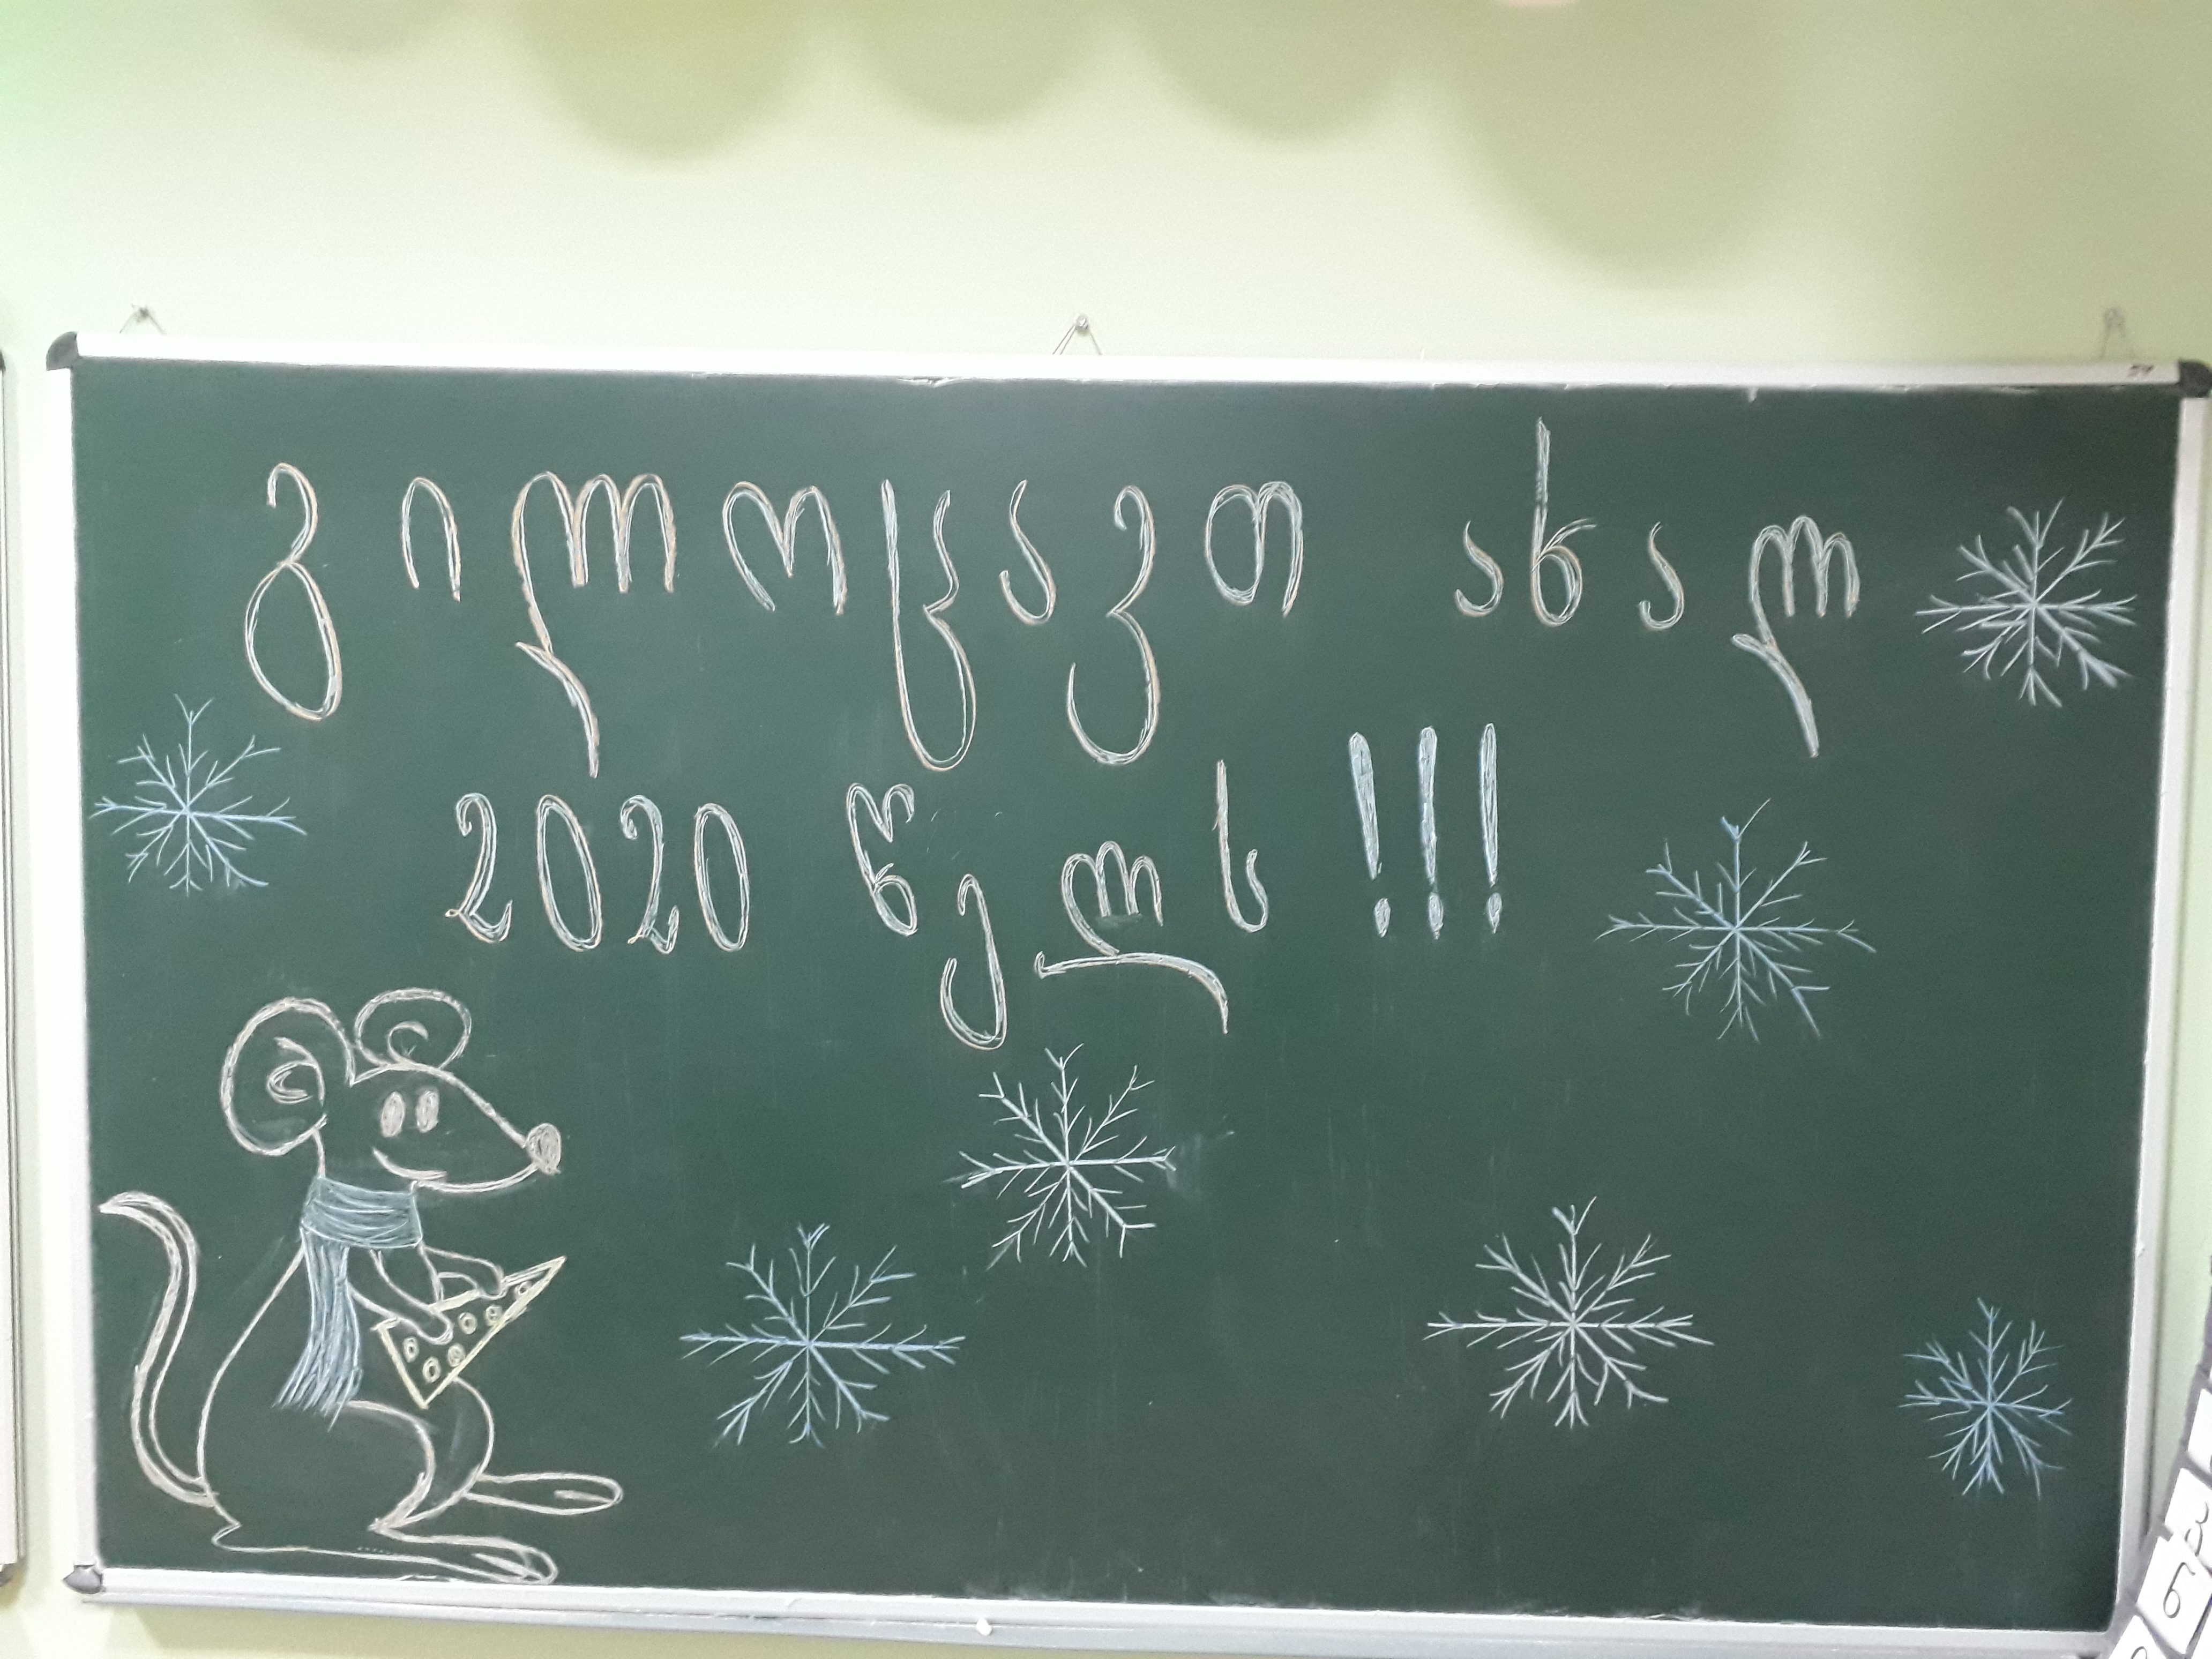 გილოცავთ ახალ
2020 წელს !!!